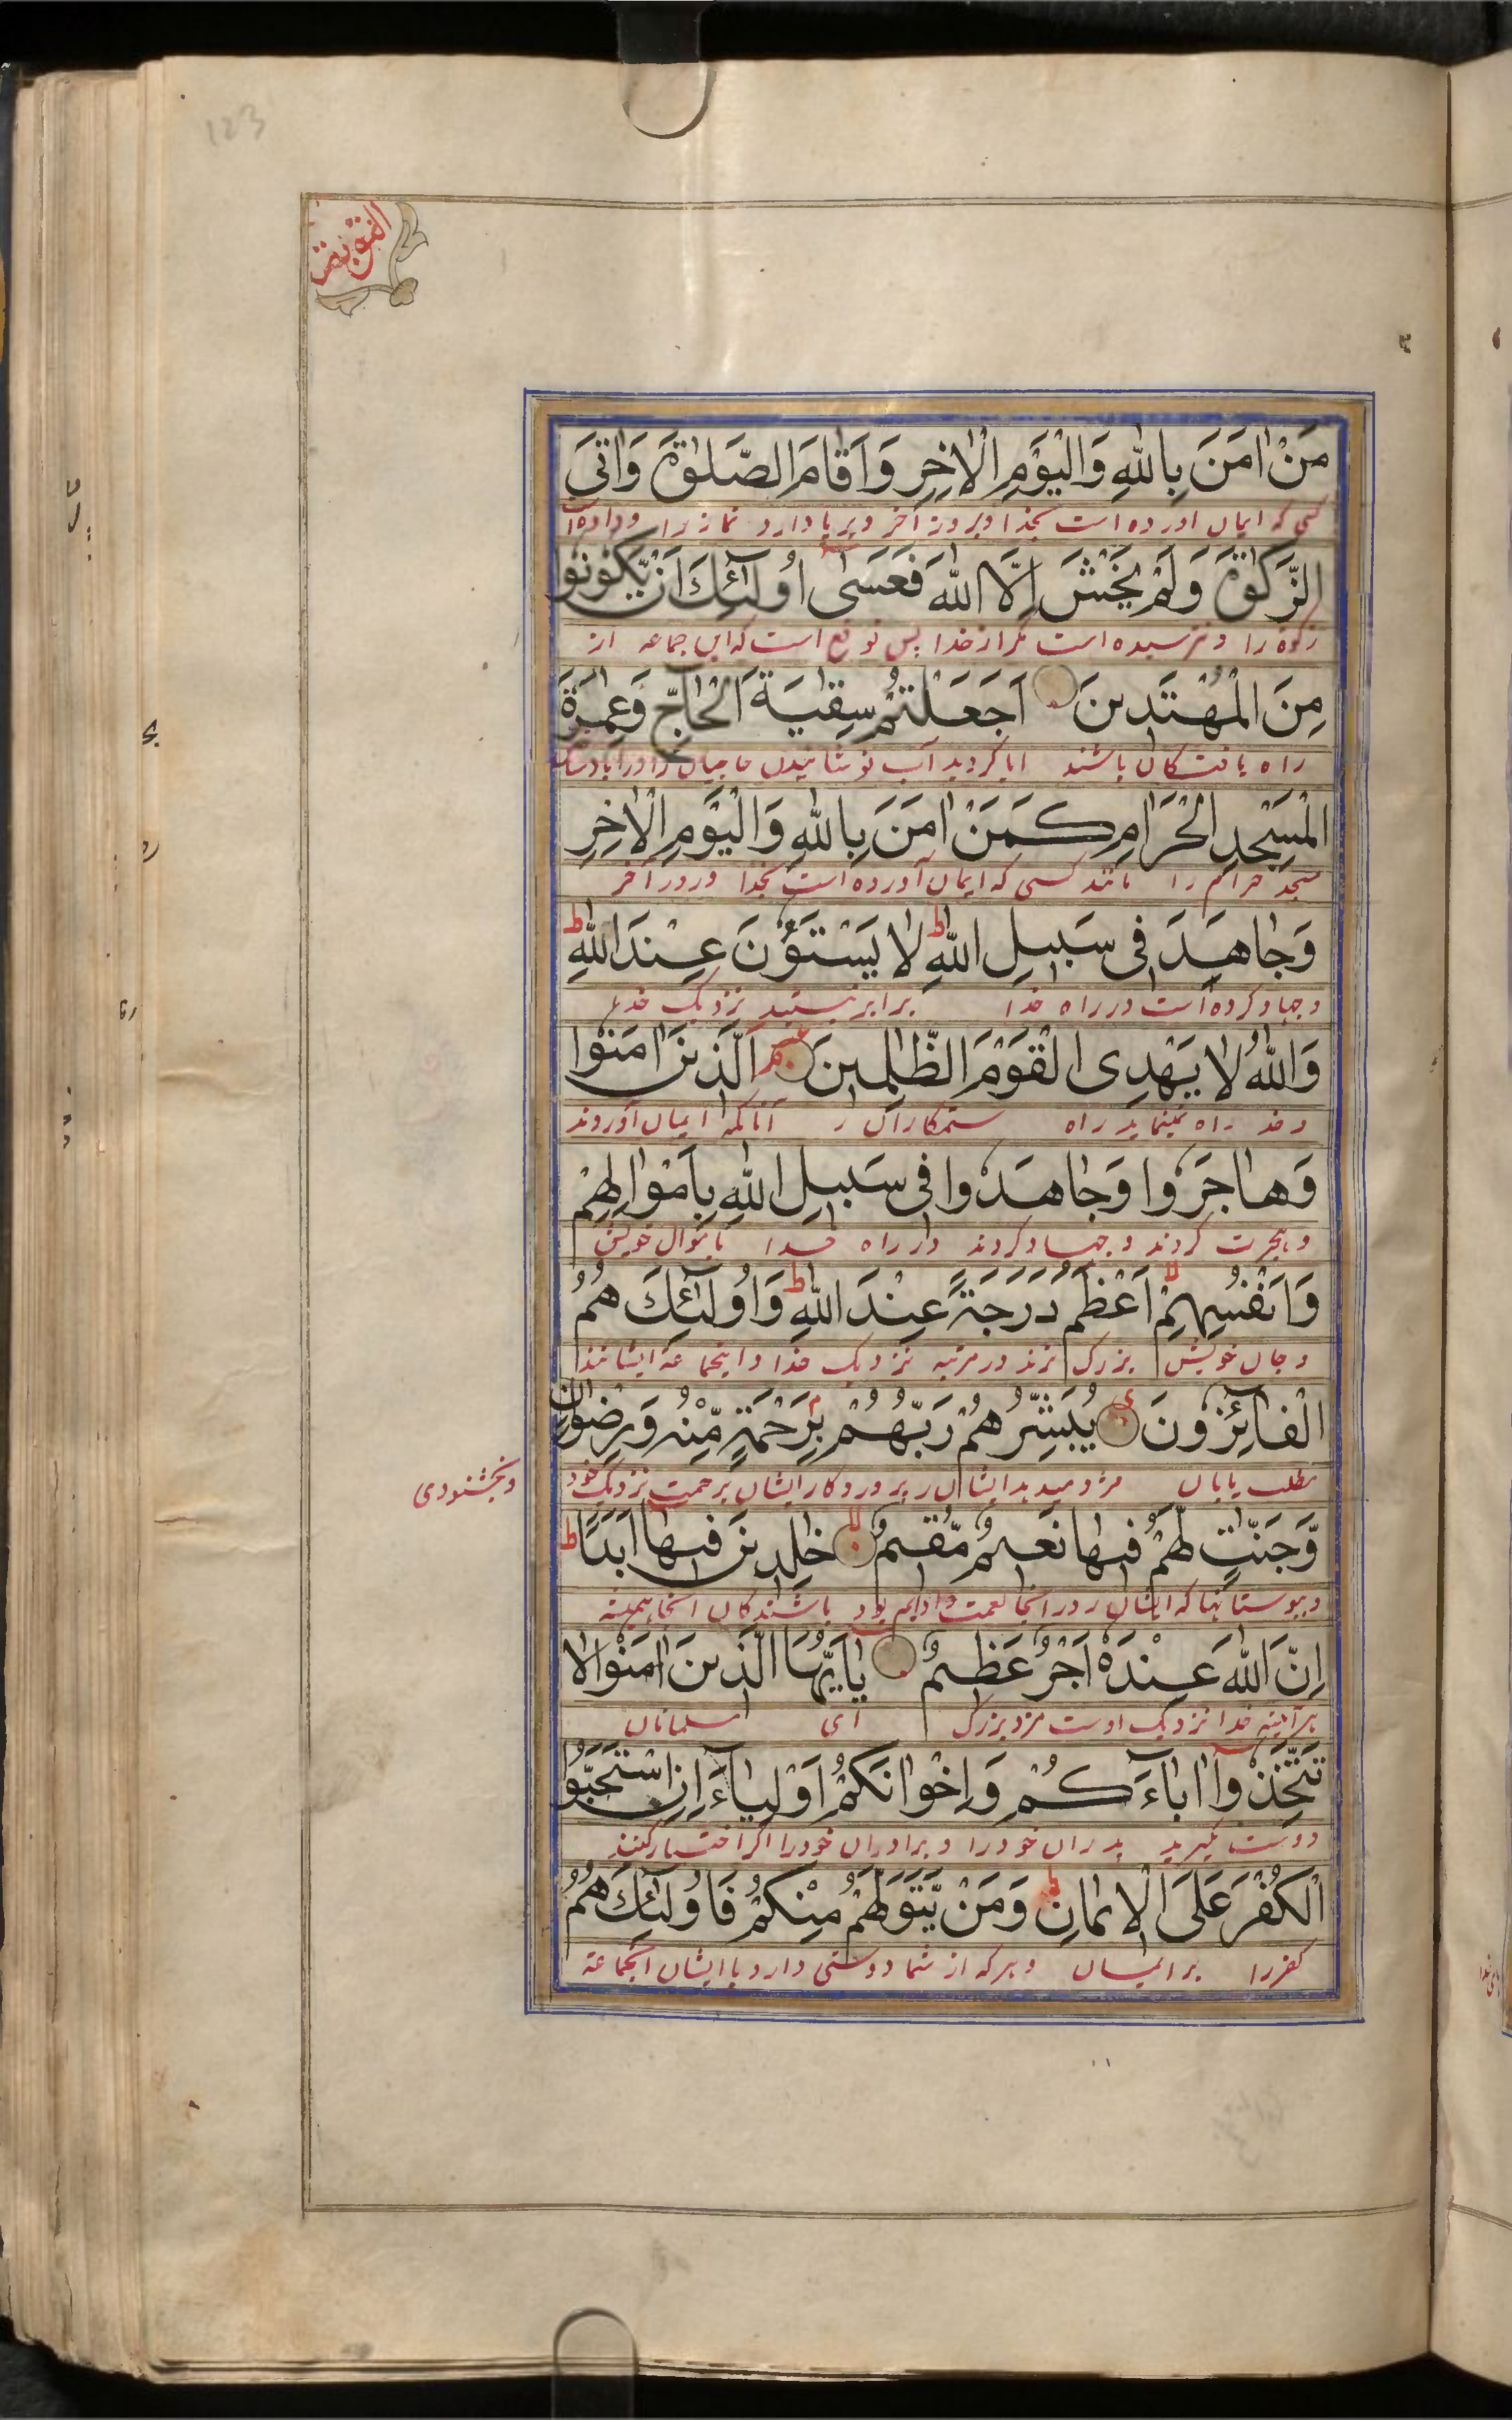 123
مَنْ اٰمَنَ بِاللّٰهِ وَالْیَوْمِ الْاٰخِرِ وَاَقَامَ الصَّلٰوةَ وَاٰتَی
کسی که ایمان اورده است بخدا و بروز آخر و برپا دارد نماز را و داده است
الزَّکٰوةَ وَلَمْ یَخْشَ اِلَّا اللّٰهَ فَعَسٰٓی اُولٰٓئِكَ اَنْ یَّکُوْنُوْا
زکوة را و نترسیده است مگر از خدا پس توقع است که این جماعه از
مِنَ الْمُهْتَدِیْنَ اَجَعَلْتُمْ سِقَایَةَ الْحَآجِّ وَعِمَارَةَ
راه یافتکان باشند ایا کردید آب نوشانیدن حاجیان را و
الْمَسْجِدِ الْحَرَامِ کَمَنْ اٰمَنَ بِاللّٰهِ وَالْیَوْمِ الْاٰخِرِ
مسجد حرام را مانند کسی که ایمان آورده است بخدا و روز آخر
وَجَاهَدَ فِیْ سَبِیْلِ اللّٰهِ ط لَا یَسْتَوٗنَ عِنْدَ اللّٰهِ ط
و جهاد کرده است در راه خدا برابر نیستند نزدیک خدا
وَاللّٰهُ لَا یَهْدِی الْقَوْمَ الظّٰلِمِیْنَ اَلَّذِیْنَ اٰمَنُوْا
و خدا راه نمینماید راه ستمکاران را آنانکه ایمان آوردند
وَهَاجَرُوْا وَجَاهَدُوْا فِیْ سَبِیْلِ اللّٰهِ بِاَمْوَالِهِمْ
و هجرت کردند و جهاد کردند در راه خدا باموال خویش
وَاَنْفُسِهِمْ لا اَعْظَمُ دَرَجَةً عِنْدَ اللّٰهِ ط وَاُولٰٓئِكَ هُمُ
و جان خویش بزرک ترند در مرتبه نزدیک خدا و اینجماعة ایشانند
الْفَآئِزُوْنَ یُبَشِّرُهُمْ رَبُّهُمْ بِرَحْمَةٍ مِّنْهُ وَرِضْوَانٍ
مطلب یابان مژده میدهد ایشان را پروردکار ایشان برحمت نزدیک خود
و بخشنودی
وَّجَنّٰتٍ لَّهُمْ فِیْهَا نَعِیْمٌ مُّقِیْمٌ لا خٰلِدِیْنَ فِیْهَا اَبَدًا ط
و ببوستانها که ایشان را در انجا نعمت دایم بود باشندکان انجا همیشه
اِنَّ اللّٰهَ عِنْدَهٗ اَجْرٌ عَظِیْمٌ یٰاَیُّهَا الَّذِیْنَ اٰمَنُوْا لَا
هرآیینه خدا نزدیک اوست مزد بزرک ای مسلمانان
تَتَّخِذُوْٓا اٰبَآءَکُمْ وَاِخْوَانَکُمْ اَوْلِیَآءَ اِنِ اسْتَحَبُّوا
دوست مکیرید پدران خود را و برادران خود را اکر اختیار کنند
الْکُفْرَ عَلَی الْاِیْمَانِ ط وَمَنْ یَّتَوَلَّهُمْ مِّنْکُمْ فَاُولٰٓئِكَ هُمُ
کفر را بر ایمان و هر که از شما دوستی دارد با ایشان انجماعة